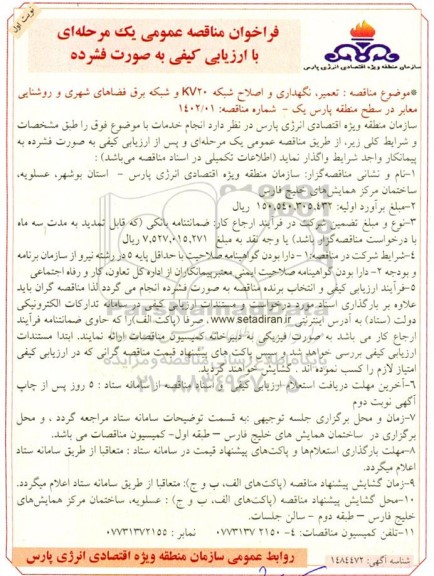 نوبت اول
فراخوان مناقصه عمومی یک مرحله‌ای
با ارزیابی کیفی به صورت فشرده
سازمان منطقه ویژه اقتصادی انرژی پارس
*موضوع مناقصه : تعمیر، نگهداری و اصلاح شبکه KV۲۰ و شبکه برق فضاهای شهری و روشنایی
معابر در سطح منطقه پارس یک – شماره مناقصه: ۱۴۰۲/۰۱
سازمان منطقه ویژه اقتصادی انرژی پارس در نظر دارد انجام خدمات با موضوع فوق را طبق مشخصات
و شرایط کلی زیر، از طریق مناقصه عمومی یک مرحله‌ای و پس از ارزیابی کیفی به صورت فشرده به
پیمانکار واجد شرایط واگذار نماید (اطلاعات تکمیلی در اسناد مناقصه می‌باشد) :
۱-نام و نشانی مناقصه‌گزار: سازمان منطقه ویژه اقتصادی انرژی پارس – استان بوشهر، عسلویه،
ساختمان مرکز همایش‌های خلیج فارس
۲-مبلغ برآورد اولیه: ۱۵۰،۵۴۰،۳۰۵،۴۳۲ ریال
۳-نوع و مبلغ تضمین شرکت در فرآیند ارجاع کار: ضمانتنامه بانکی (که قابل تمدید به مدت سه ماه
با درخواست مناقصه‌گزار باشد) یا وجه نقد به مبلغ ۷،۵۲۷،۰۱۵،۲۷۱ ریال
۴-شرایط شرکت در مناقصه:۱- دارا بودن گواهینامه صلاحیت با حداقل پایه ۵ در رشته نیرو از سازمان برنامه
و بودجه ۲- دارا بودن گواهینامه صلاحیت ایمنی معتبر پیمانکاران از اداره کل تعاون، کار و رفاه اجتماعی
۵-فرآیند ارزیابی کیفی و انتخاب برنده مناقصه به صورت فشرده انجام می گردد لذا مناقصه گران باید
علاوه بر بارگذاری اسناد مورد درخواست و مستندات ارزیابی کیفی در سامانه تدارکات الکترونیکی
دولت (ستاد) به آدرس اینترنتی www.setadiran.ir، صرفاً (پاکت الف) را که حاوی ضمانتنامه فرآیند
ارجاع کار می باشد به صورت فیزیکی به دبیرخانه کمیسیون مناقصات ارائه نمایند. ابتدا مستندات
ارزیابی کیفی بررسی خواهد شد و سپس پاکت های پیشنهاد قیمت مناقصه گرانی که در ارزیابی کیفی
امتیاز لازم را کسب نموده اند . گشایش خواهد گردید.
۶-آخرین مهلت دریافت استعلام ارزیابی کیفی و اسناد مناقصه از سامانه ستاد : ۵ روز پس از چاپ
آگهی نوبت دوم
۷-زمان و محل برگزاری جلسه توجیهی :به قسمت توضیحات سامانه ستاد مراجعه گردد . و محل
برگزاری در ساختمان همایش های خلیج فارس – طبقه اول- کمیسیون مناقصات می باشد.
۸-مهلت بارگذاری استعلام‌ها و پاکت‌های پیشنهاد قیمت در سامانه ستاد : متعاقبا از طریق سامانه ستاد
اعلام میگردد.
۹-زمان گشایش پیشنهاد مناقصه (پاکت‌های الف، ب و ج): متعاقبا از طریق سامانه ستاد اعلام میگردد.
۱۰-محل گشایش پیشنهاد مناقصه (پاکت‌های الف، ب و ج) : عسلویه، ساختمان مرکز همایش‌های
خلیج فارس – طبقه دوم - سالن جلسات.
۱۱-تلفن کمیسیون مناقصات: ۴- ۰۷۷۳۱۳۷۲۱۵۰ نمابر : ۰۷۷۳۱۳۷۲۱۵۵
شناسه آگهی: ۱۴۸۴۴۷۲
روابط عمومی سازمان منطقه ویژه اقتصادی انرژی پارس